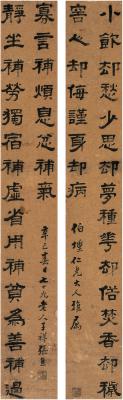 小飲却愁少思却夢種花却俗焚香却穢
容人却侮謹身却病
伯壎仁兄大人雅屬
靜坐補勞獨宿補虛省用補貧為善補過
寡言補煩息忿補氣
辛巳春日七十九老人子祥張熊